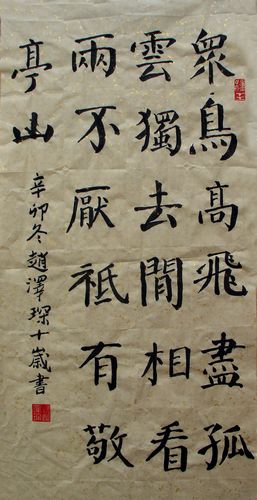 眾鳥高飛盡孤
雲獨去閒相看
兩不厭祗有敬
亭山
辛卯冬趙澤琛十歲書